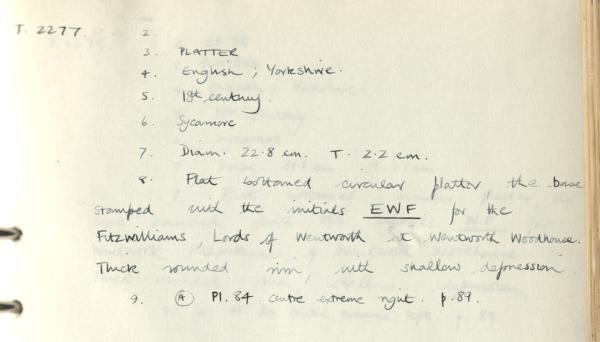 T. 2277.
2.
3. PLATTER
4. English ; Yorkshire.
5. 18th century.
6. Sycamore
7. Diam. 22.8 cm. T. 2.2 cm.
8. Flat bottomed circular platter the base
stamped with the initials EWF for the
Fitzwilliams, Lords of Wentworth at Wentworth Woodhouse.
Thick rounded rim, with shallow depression.
9. (A) Pl. 84 centre extreme right. p. 89.